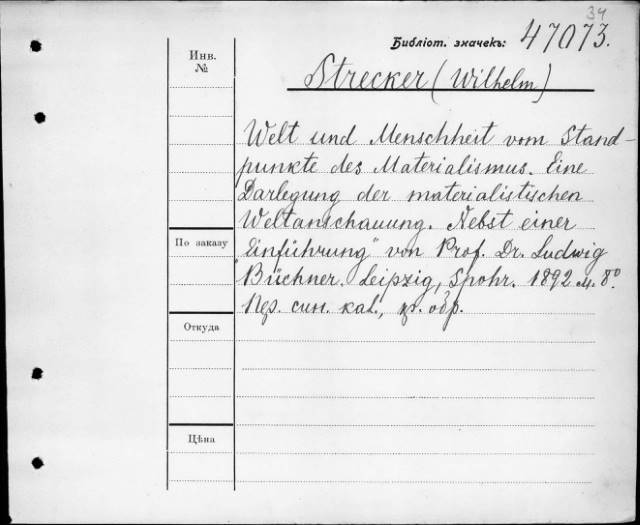 34
Библіот. значекъ: 47073.
Инв.
№
Strecker (Wilhelm)
Welt und Menschheit vom Stand-
punkte des Materialismus. Eine
Darlegung der materialistischen
Weltanschauung. Nebst einer
По заказу
"Einführung" von Prof. Dr. Ludwig
Büchner. Leipzig, Spohr. 1892 м. 8°
Пер. син. кал., зл. обр.
Откуда
Цѣна